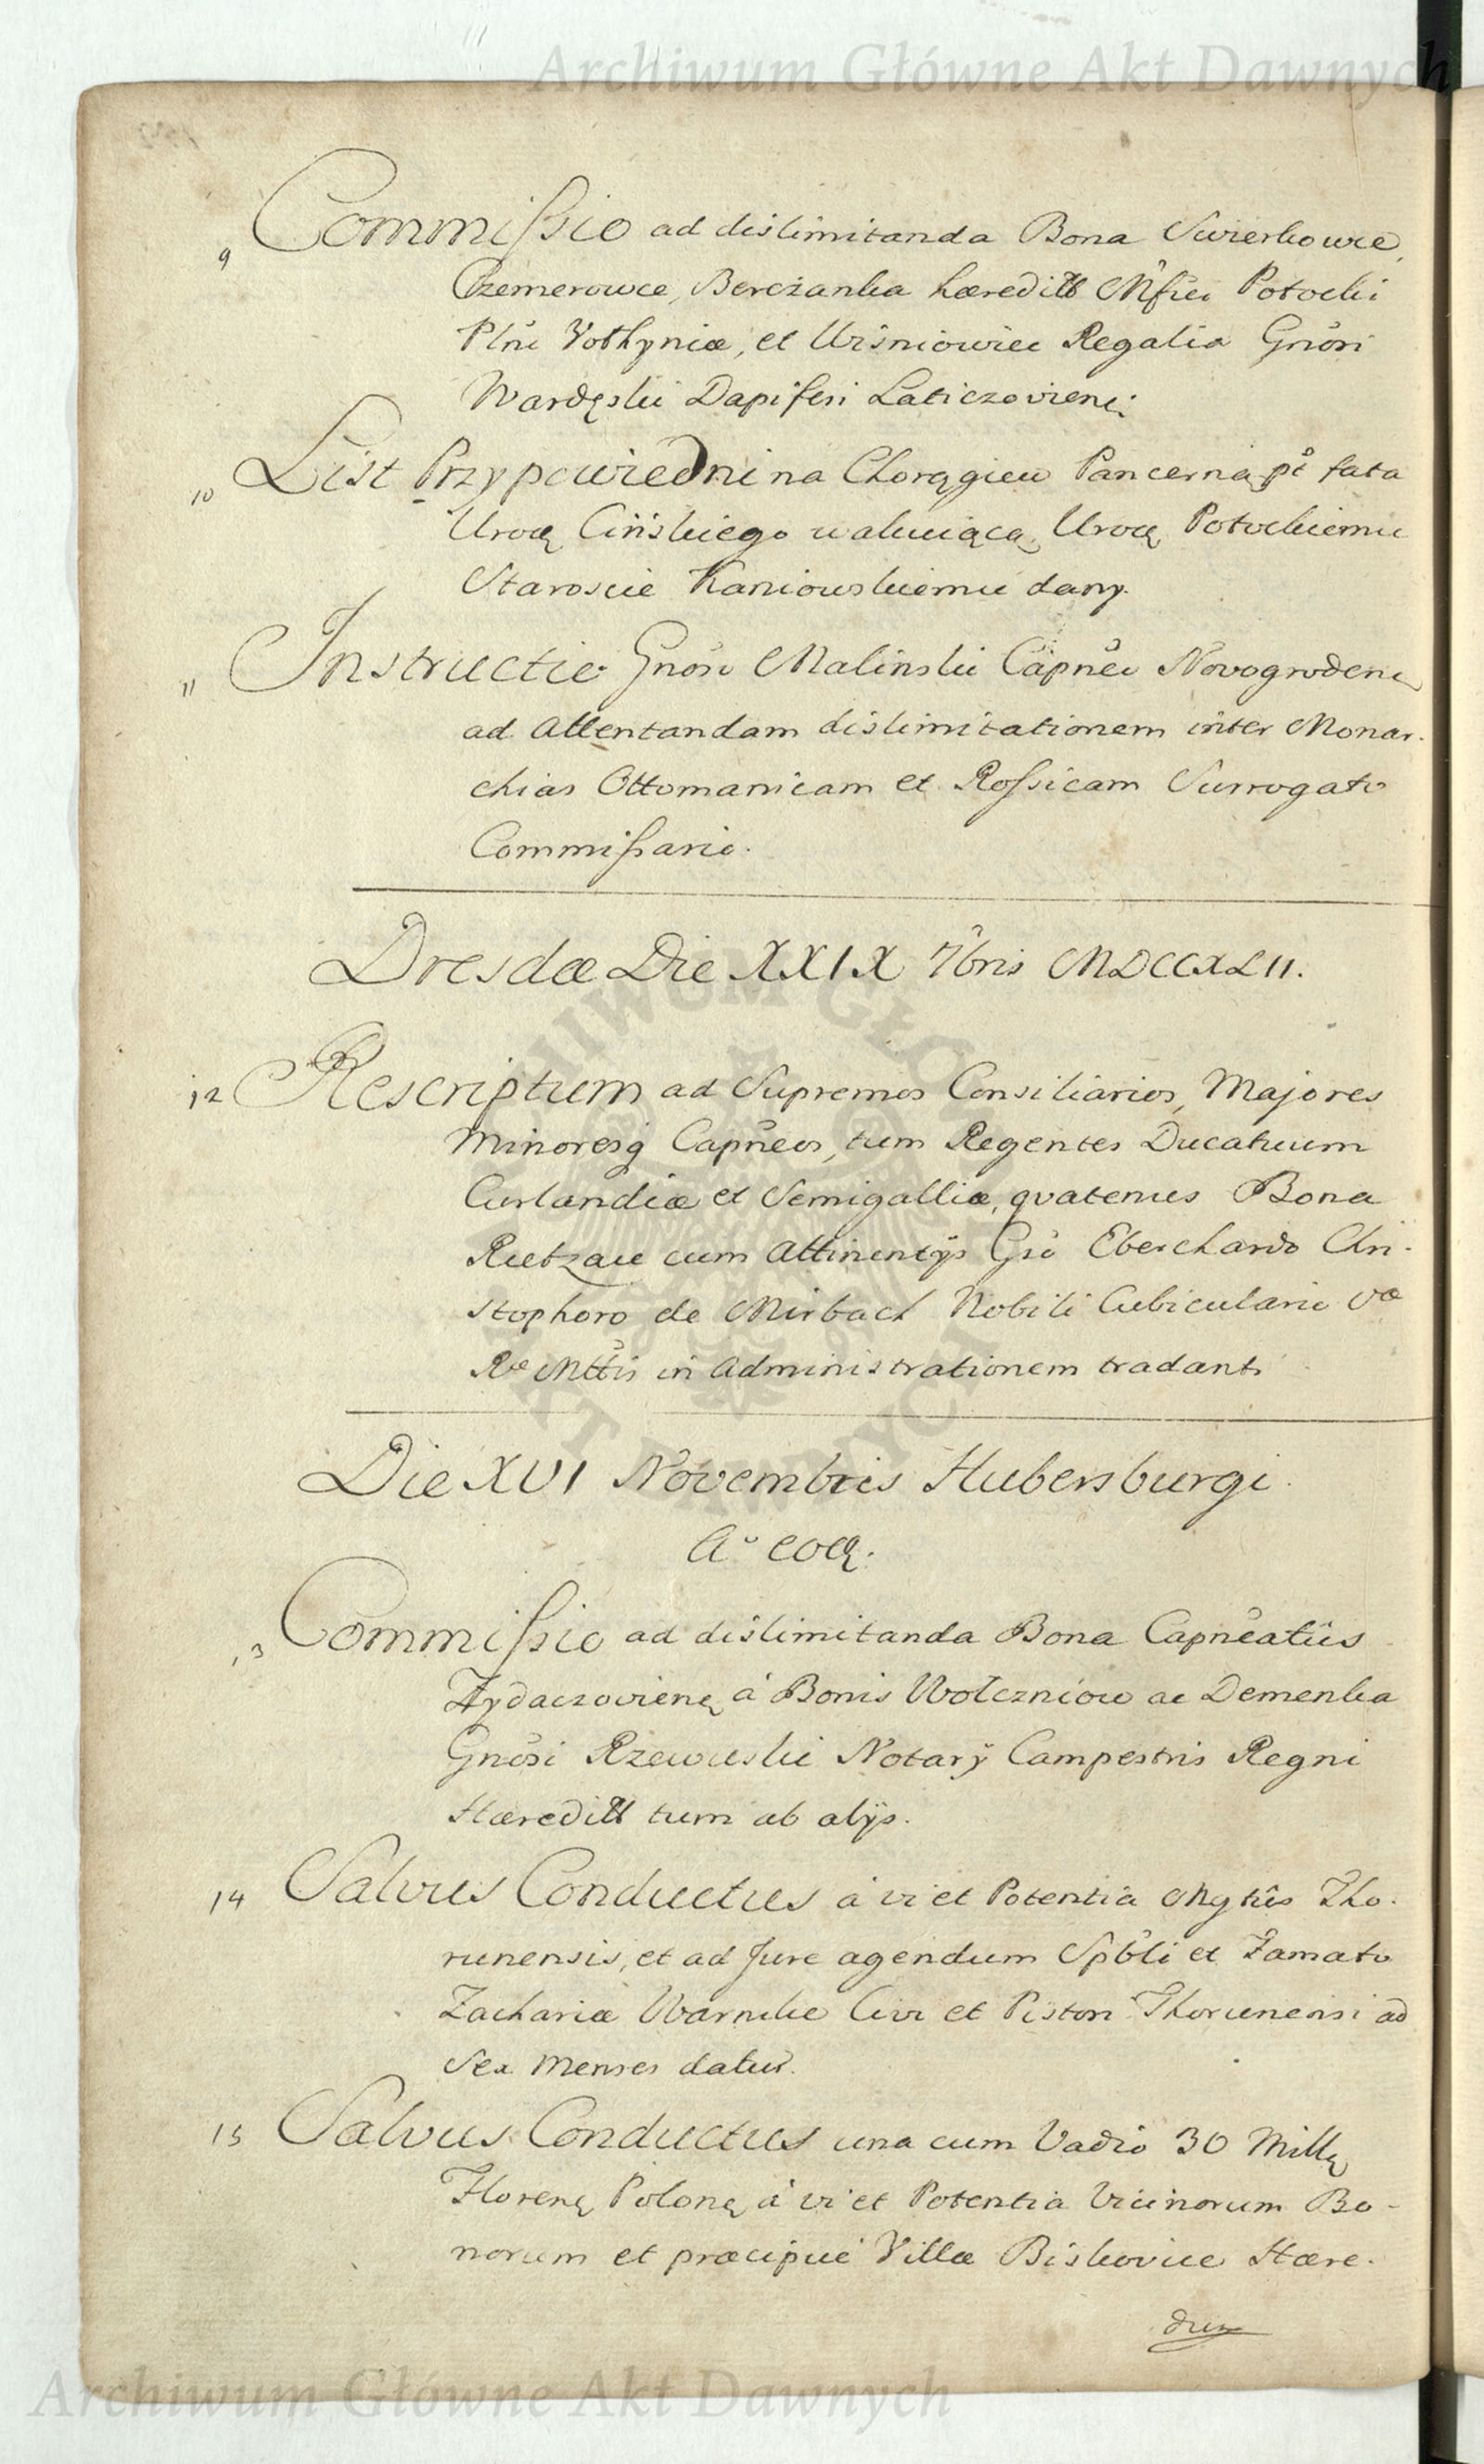 Archiwum Główne Akt Dawnych
9 Commissio ad dislimitanda Bona Swierkowce,
Czemerowce, Berczanka hæreditt Mfici Potocki
Plni Volhyniæ, et Wisniowiec Regalia Gnosi
Wardęski Dapiferi Laticzoviens:
10 List Przypowiedni na Chorągiew Pancerną pt fata
Uroę Cińskiego wakuiącą, Uroę Potockiemu
Staroscie Kaniowskiemu dany.
11 Instructio Gnoso Malinski Capneo Novogroden
ad attentandam dislimitationem inter Monar-
chias Ottomanicam et Rossicam Surrogato
Commissario.
Dresdæ Die XXIX 7bris MDCCXLII.
12 Rescriptum ad Supremos Consiliarios, Majores
Minoresq Capneos, tum Regentes Ducatuum
Curlandiæ et Semigalliæ, qvatenus Bona
Rutzau cum attinentÿs Gso Eberchardo Chri-
stophoro de Mirbach Nobili Cubiculario Væ
Ræ Mttis in administrationem tradant.
Die XVI Novembris Hubersburgi.
Aº eoq.
13 Commissio ad dislimitanda Bona Capneatus
Zydaczoviens à Bonis Wołczniow ac Demenka
Gnosi Rzewuski Notarÿ Campestris Regni
Hæreditt tum ab alÿs.
14 Salvus Conductus à vi et Potentia Mgtus Tho-
runensis, et ad Jure agendum Spbli et Famato
Zachariæ Warnike Civi et Pistori Thorunensi ad
Sex Menses datus.
15 Salvus Conductus una cum Vadio 30 Mille
Floren Polon à vi et Potentia Vicinorum Bo-
norum et præcipuè Villæ Biskovice Hære-
dum
Archiwum Główne Akt Dawnych